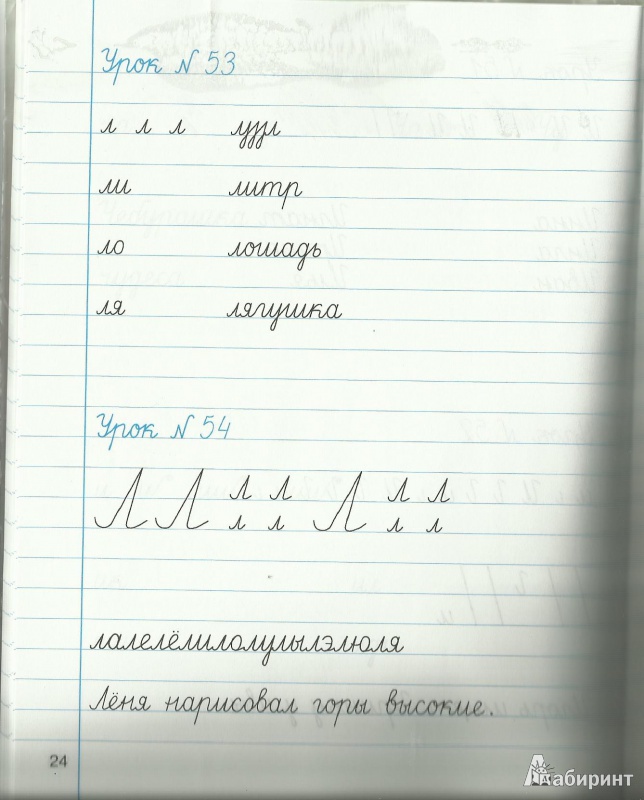 Урок N 53
л л л лузи
ли литр
ло лошадь
ля лягушка
Урок N 54
Л Л л л Л л л
л л л л
лалелёлилолулылэлюля
Лёня нарисовал горы высокие.
24
Лабиринт